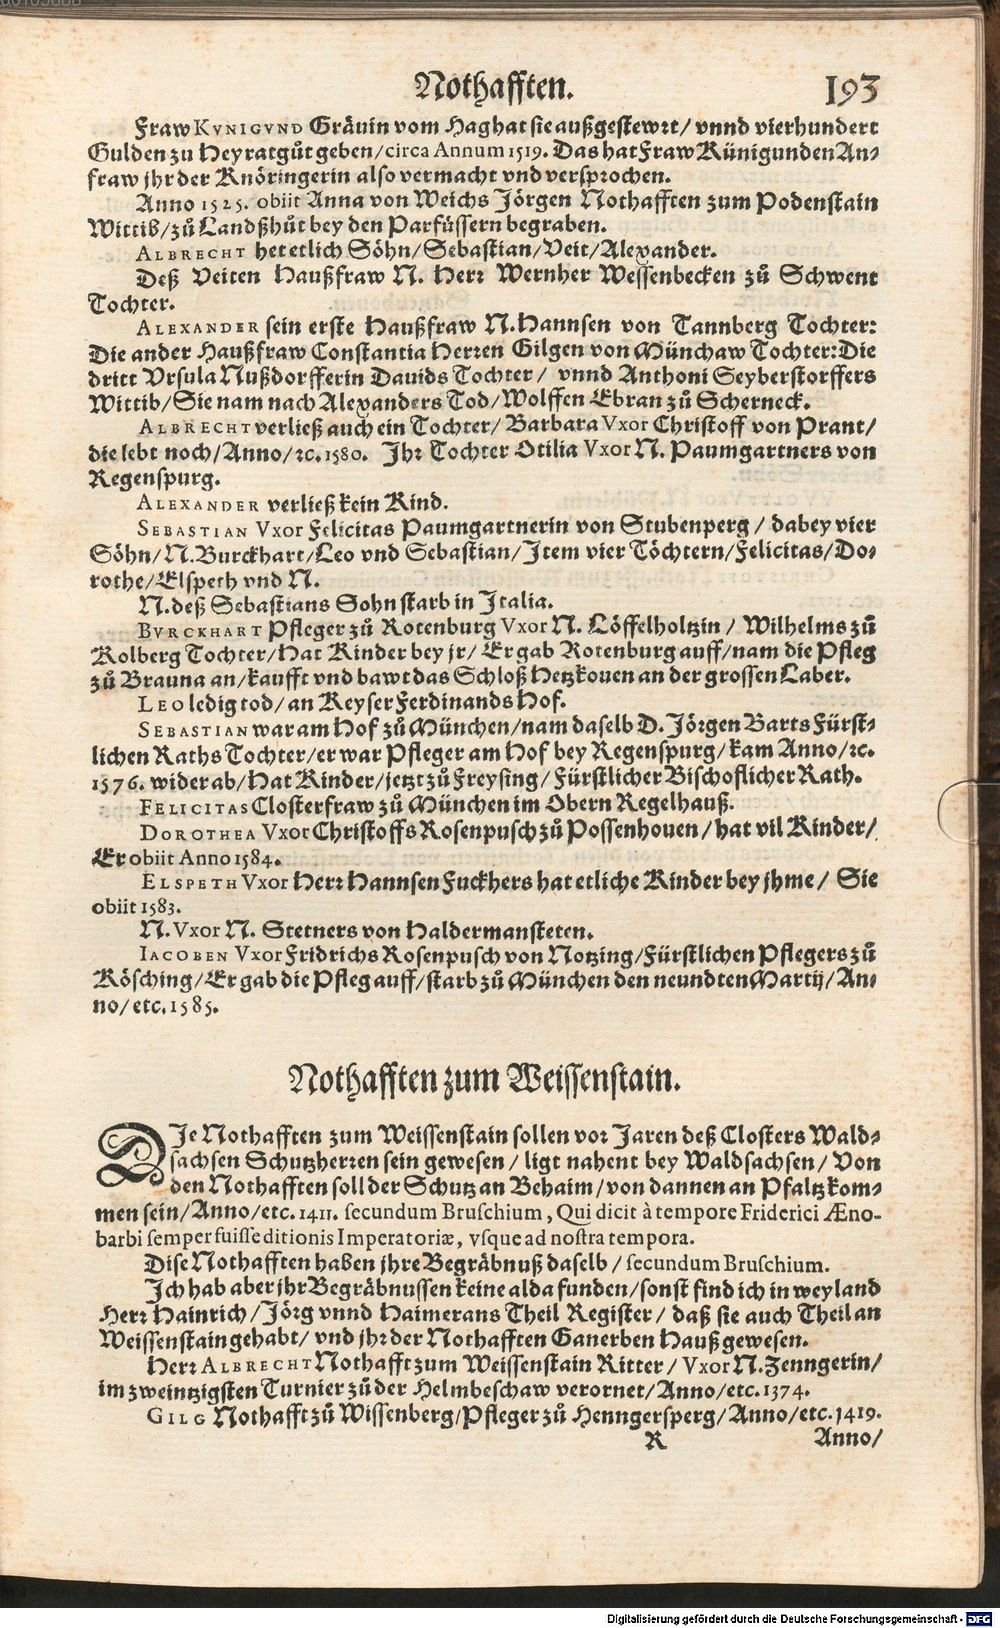 Nothafften. 193
Fraw KVNIGVND Gräuin vom Hag hat sie außgestewrt/ vnnd vierhundert
Gulden zu Heyratgůt geben/circa Annum 1519. Das hat Fraw Künigunden An-
fraw jhr der Knöringerin also vermacht vnd versprochen.
Anno 1525. obiit Anna von Weichs Jörgen Nothafften zum Podenstain
Wittib/zů Landßhůt bey den Parfüssern begraben.
ALBRECHT het etlich Söhn/Sebastian/Veit/Alexander.
Deß Veiten Haußfraw N. Herr Wernher Wessenbecken zů Schwent
Tochter.
ALEXANDER sein erste Haußfraw N. Hannsen von Tannberg Tochter:
Die ander Haußfraw Constantia Herren Gilgen von Münchaw Tochter: Die
dritt Vrsula Nußdorfferin Dauids Tochter/ vnnd Anthoni Seyberstorffers
Wittib/Sie nam nach Alexanders Tod/Wolffen Ebran zů Scherneck.
ALBRECHT verließ auch ein Tochter/ Barbara Vxor Christoff von Prant/
die lebt noch/Anno/ꝛc. 1580. Jhr Tochter Otilia Vxor N. Paumgartners von
Regenspurg.
ALEXANDER verließ kein Kind.
SEBASTIAN Vxor Felicitas Paumgartnerin von Stubenperg / dabey vier
Söhn/N. Burckhart/Leo vnd Sebastian/Jtem vier Töchtern/Felicitas/Do-
rothe/Elspeth vnd N.
N. deß Sebastians Sohn starb in Jtalia.
BVRCKHART Pfleger zů Rotenburg Vxor N. Löffelholtzin / Wilhelms zů
Kolberg Tochter/Hat Kinder bey jr/ Er gab Rotenburg auff/nam die Pfleg
zů Brauna an/kaufft vnd bawt das Schloß Hetzkouen an der grossen Laber.
LEO ledig tod/an Keyser Ferdinands Hof.
SEBASTIAN war am Hof zů München/nam daselb D. Jörgen Barts Fürst-
lichen Raths Tochter/er war Pfleger am Hof bey Regenspurg/kam Anno/ꝛc.
1576. wider ab/Hat Kinder/jetzt zů Freysing/Fürstlicher Bischoflicher Rath.
FELICITAS Closterfraw zů München im Obern Regelhauß.
DOROTHEA Vxor Christoffs Rosenpusch zů Possenhouen/hat vil Kinder/
Er obiit Anno 1584.
ELSPETH Vxor Herr Hannsen Fuckhers hat etliche Kinder bey jhme/ Sie
obiit 1583.
N. Vxor N. Stetners von Haldermansteten.
IACOBEN Vxor Fridrichs Rosenpusch von Notzing/Fürstlichen Pflegers zů
Kösching/Er gab die Pfleg auff/starb zů München den neundten Martij/An-
no/etc. 1585.
Nothafften zum Weissenstain.
DJe Nothafften zum Weissenstain sollen vor Jaren deß Closters Wald-
sachsen Schutzherren sein gewesen/ligt nahent bey Waldsachsen/Von
den Nothafften soll der Schutz an Behaim/von dannen an Pfaltz kom-
men sein/Anno/etc. 1411. secundum Bruschium, Qui dicit à tempore Friderici Æno-
barbi semper fuisse ditionis Imperatoriæ, vsque ad nostra tempora.
Dise Nothafften haben jhre Begräbnuß daselb/secundum Bruschium.
Jch hab aber jhr Begräbnussen keine alda funden/sonst find ich in weyland
Herr Hainrich/Jörg vnnd Haimerans Theil Register/ daß sie auch Theil an
Weissenstain gehabt/vnd jhr der Nothafften Ganerben Hauß gewesen.
Herr ALBRECHT Nothafft zum Weissenstain Ritter/ Vxor N. Zenngerin/
im zweintzigsten Turnier zů der Helmbeschaw verornet/Anno/etc. 1374.
GILG Nothafft zů Wissenberg/Pfleger zů Henngersperg/Anno/etc. 1419.
R Anno/
Digitalisierung gefördert durch die Deutsche Forschungsgemeinschaft - DFG